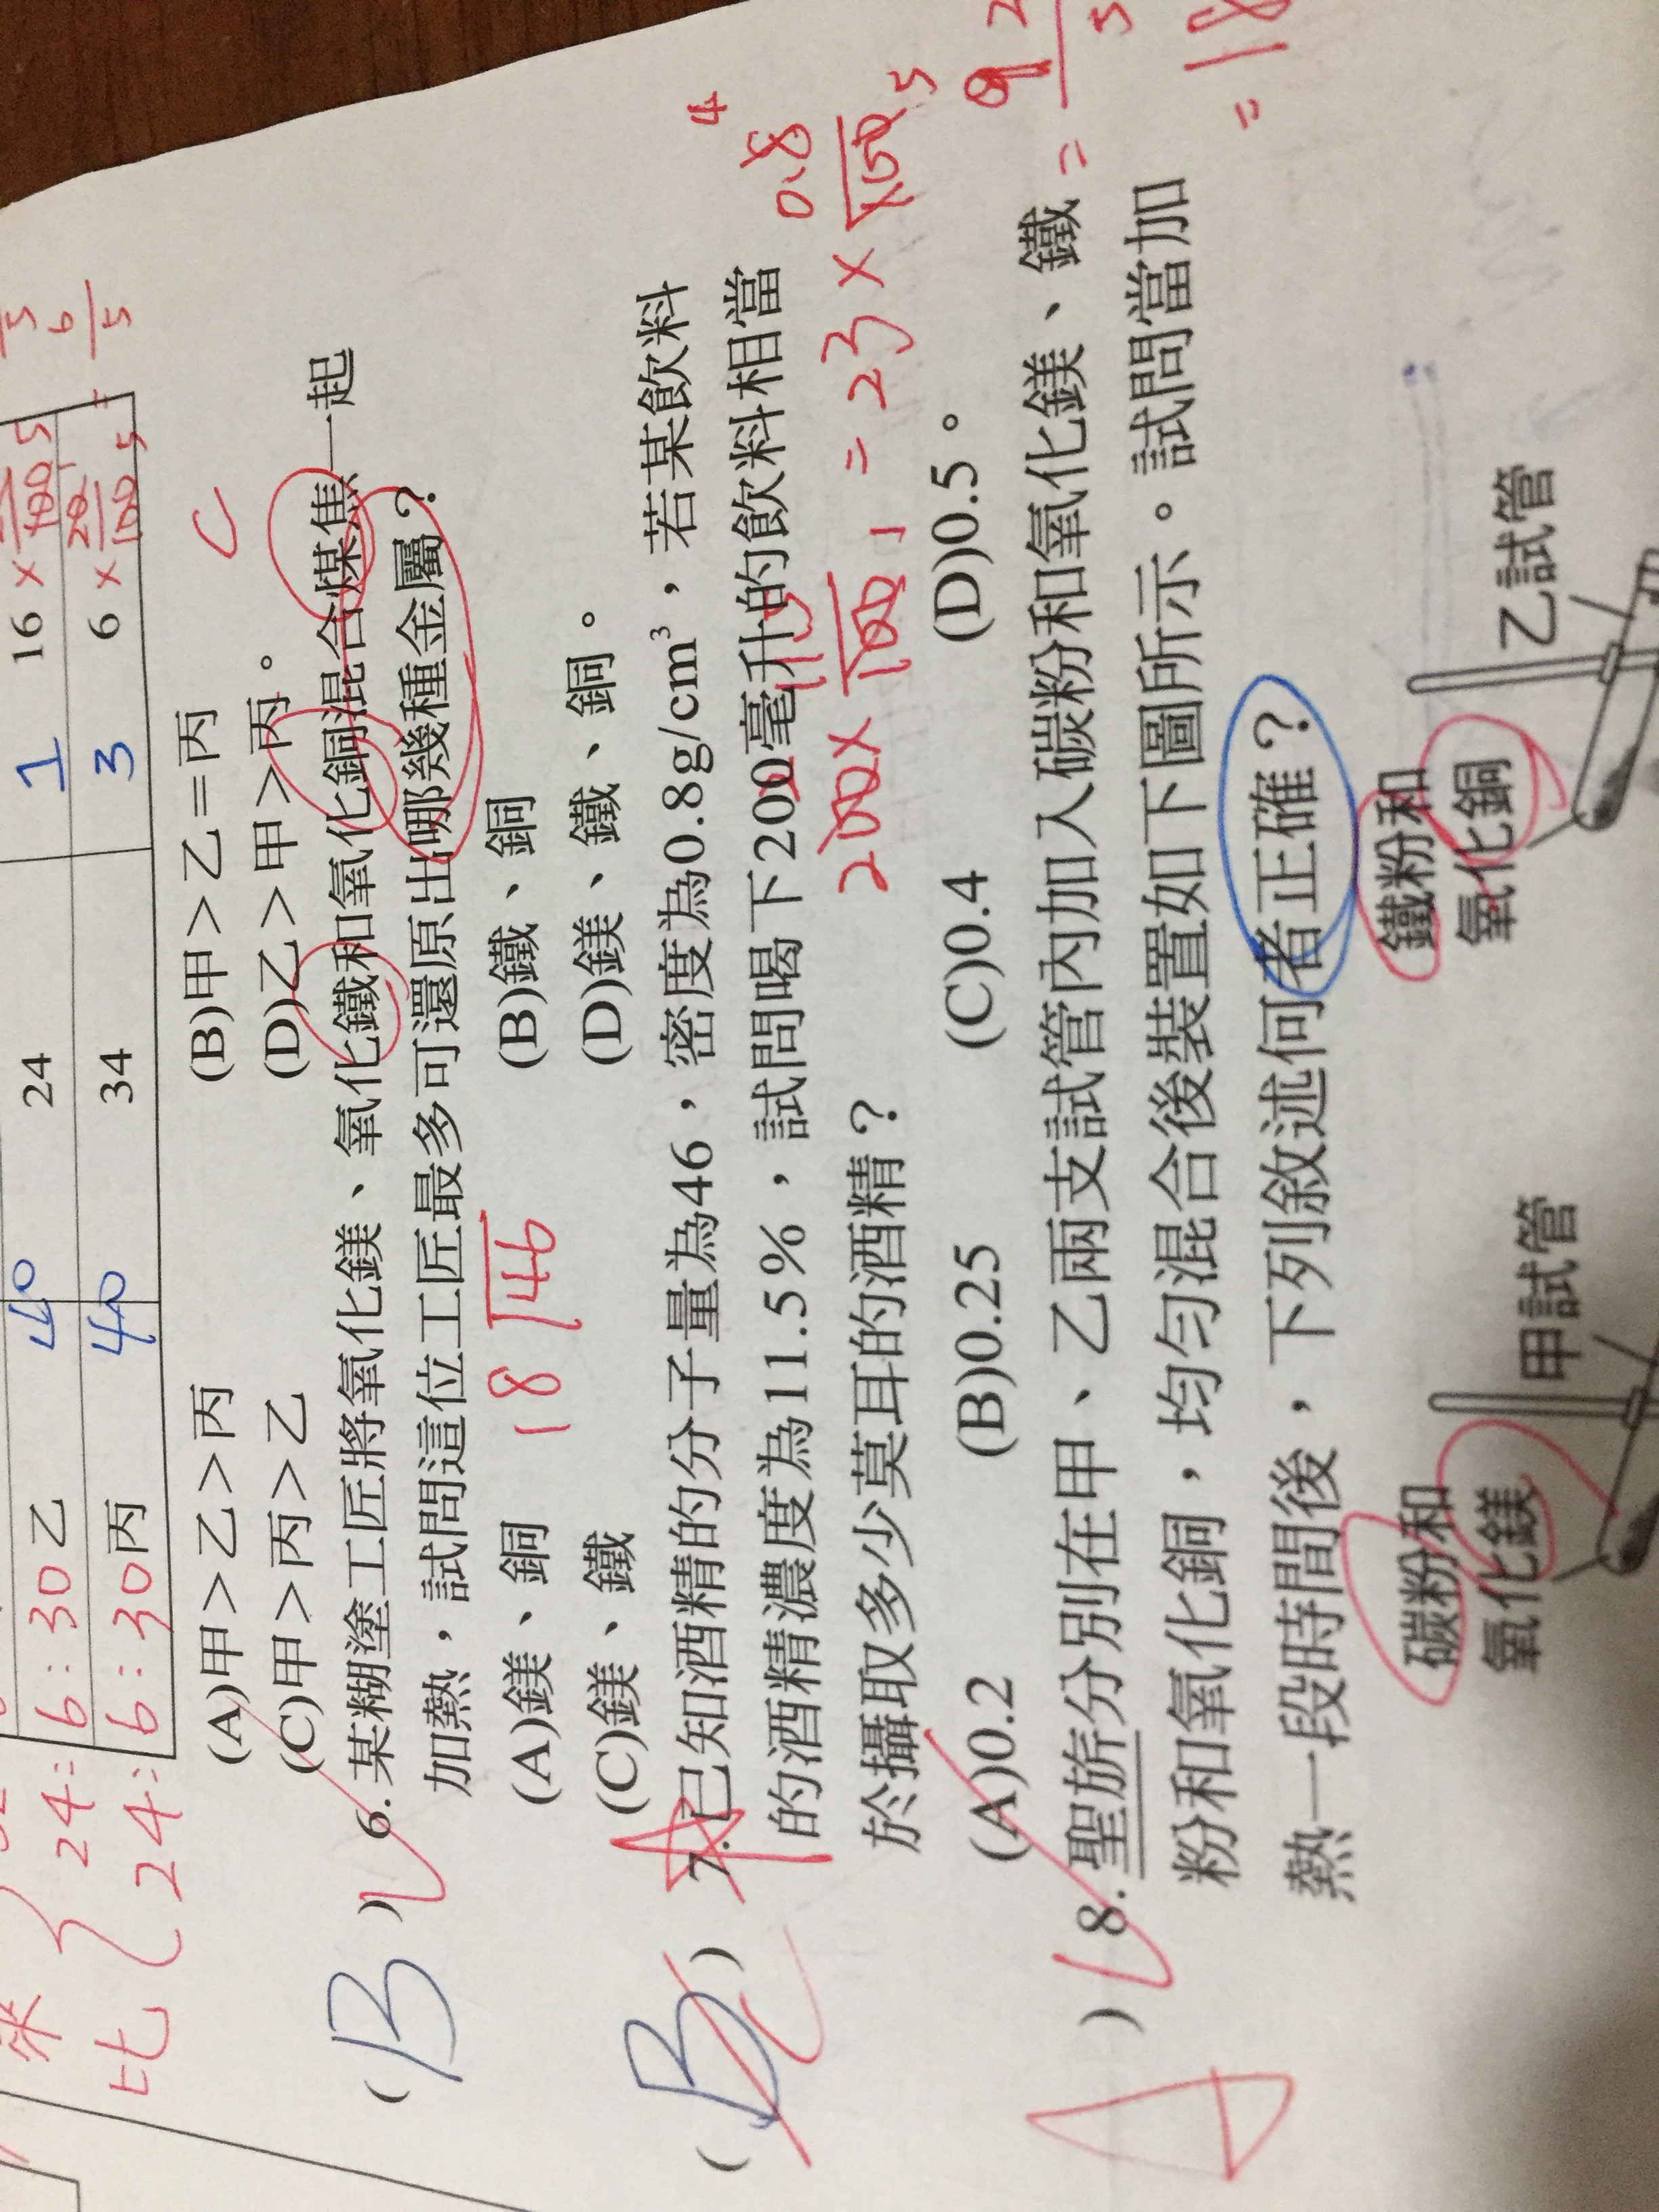 1 16 × 100 5
24 40 乙 6:30 24:
3 6 × 20 100 5 = 6 5
34 40 丙 6:30 24: 比
(A)甲>乙>丙 (B)甲>乙=丙 C
(C)甲>丙>乙 (D)乙>甲>丙。
(B) 6.某糊塗工匠將氧化鎂、氧化鐵和氧化銅混合煤焦一起
加熱,試問這位工匠最多可還原出哪幾種金屬?
(A)鎂、銅 (B)鐵、銅
18 46
(C)鎂、鐵 (D)鎂、鐵、銅。
(B) 7.已知酒精的分子量為46,密度為0.8g/cm³,若某飲料
的酒精濃度為11.5%,試問喝下200毫升的飲料相當
於攝取多少莫耳的酒精?
200 × 100 = 23 × 0.8 100 4 5
(A)0.2 (B)0.25 (C)0.4 (D)0.5。
= 92 5
= 18
(A) 8.聖旂分別在甲、乙兩支試管內加入碳粉和氧化鎂、鐵
粉和氧化銅,均勻混合後裝置如下圖所示。試問當加
熱一段時間後,下列敘述何者正確?
碳粉和
氧化鎂
甲試管
鐵粉和
氧化銅
乙試管